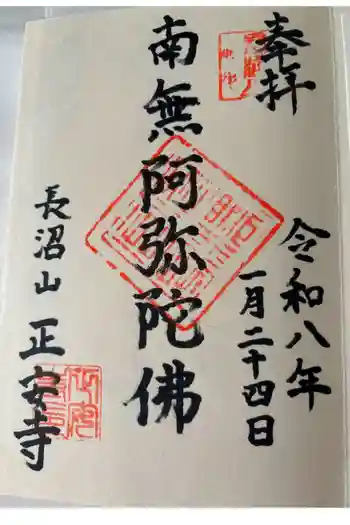 奉拝
令和八年
一月二十四日
南無阿弥陀佛
長沼山
正安寺